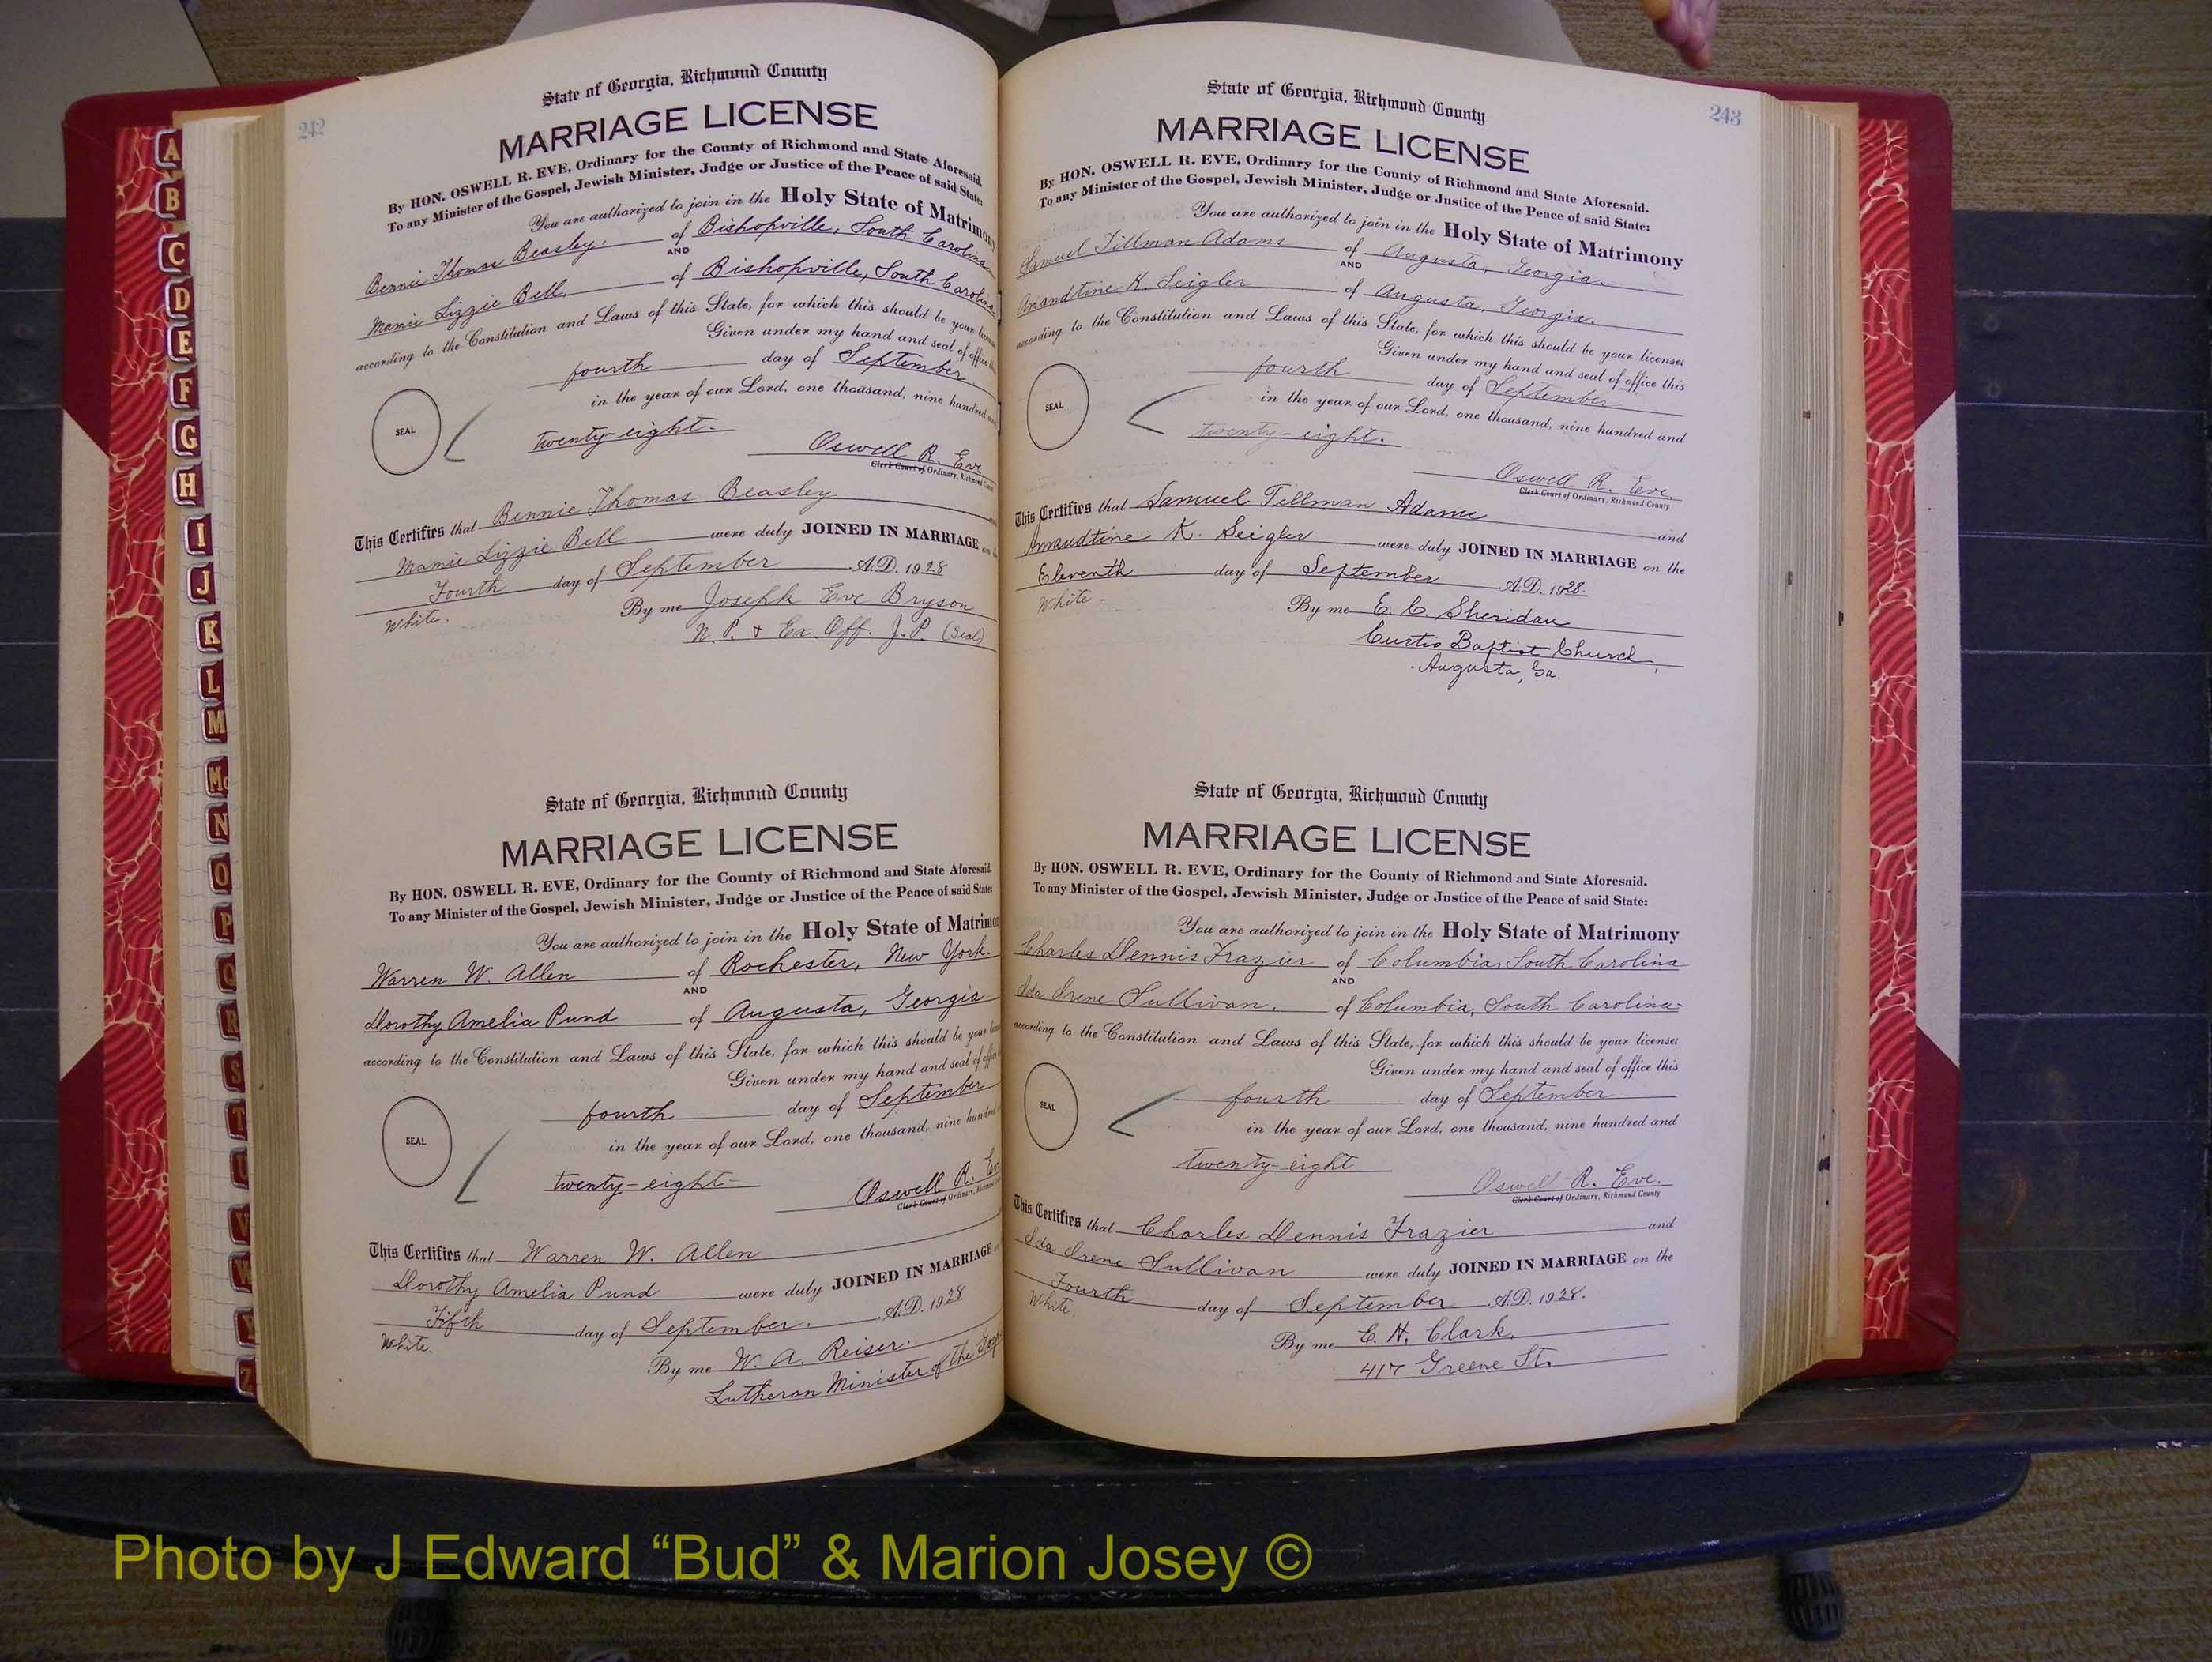 242
State of Georgia, Richmond County
MARRIAGE LICENSE
By HON. OSWELL R. EVE, Ordinary for the County of Richmond and State Aforesaid.
To any Minister of the Gospel, Jewish Minister, Judge or Justice of the Peace of said State:
You are authorized to join in the Holy State of Matrimony
Bennie Thomas Beasley. of Bishopville, South Carolina
AND
Mamie Lizzie Bell, of Bishopville, South Carolina
according to the Constitution and Laws of this State, for which this should be your
Given under my hand and seal of office
fourth day of September
in the year of our Lord, one thousand, nine hundred
SEAL
twenty-eight-
Oswell R. Eve
Clerk Court of Ordinary, Richmond County
This Certifies that Bennie Thomas Beasley
Mamie Lizzie Bell were duly JOINED IN MARRIAGE
Fourth day of September A.D. 1928
White. By me Joseph Eve Bryson
N. P. & Ex. Off. J. P. (Seal)
State of Georgia, Richmond County
MARRIAGE LICENSE
By HON. OSWELL R. EVE, Ordinary for the County of Richmond and State Aforesaid.
To any Minister of the Gospel, Jewish Minister, Judge or Justice of the Peace of said State:
You are authorized to join in the Holy State of Matrimo
Warren W. Allen of Rochester, New York.
AND
Dorothy Amelia Pund of Augusta, Georgia
according to the Constitution and Laws of this State, for which this should be your
Given under my hand and seal of
fourth day of September
in the year of our Lord, one thousand, nine hundred
SEAL
twenty-eight-
Oswell R. Eve
Clerk Court of Ordinary, Richmond
This Certifies that Warren W. Allen
Dorothy Amelia Pund were duly JOINED IN MARRIAGE
Fifth day of September. A.D. 1928
White. By me W. A. Reiser.
Lutheran Minister of the Gos
243
State of Georgia, Richmond County
MARRIAGE LICENSE
By HON. OSWELL R. EVE, Ordinary for the County of Richmond and State Aforesaid.
To any Minister of the Gospel, Jewish Minister, Judge or Justice of the Peace of said State:
You are authorized to join in the Holy State of Matrimony
Samuel Tillman Adams of Augusta, Georgia.
AND
K. Seigler of Augusta, Georgia.
according to the Constitution and Laws of this State, for which this should be your licenses
Given under my hand and seal of office this
fourth day of September
in the year of our Lord, one thousand, nine hundred and
SEAL
twenty-eight.
Oswell R. Eve.
Clerk Court of Ordinary, Richmond County
This Certifies that Samuel Tillman Adams and
K. Seigler were duly JOINED IN MARRIAGE on the
Eleventh day of September A.D. 1928.
White - By me E. C. Sheridan
Curtis Baptist Church,
Augusta, Ga.
State of Georgia, Richmond County
MARRIAGE LICENSE
By HON. OSWELL R. EVE, Ordinary for the County of Richmond and State Aforesaid.
To any Minister of the Gospel, Jewish Minister, Judge or Justice of the Peace of said State:
You are authorized to join in the Holy State of Matrimony
Charles Dennis Frazier of Columbia, South Carolina
AND
Ida Irene Sullivan. of Columbia, South Carolina-
according to the Constitution and Laws of this State, for which this should be your licenses
Given under my hand and seal of office this
fourth day of September
in the year of our Lord, one thousand, nine hundred and
SEAL
twenty-eight
Oswell R. Eve.
Clerk Court of Ordinary, Richmond County
This Certifies that Charles Dennis Frazier and
Ida Irene Sullivan were duly JOINED IN MARRIAGE on the
Fourth day of September A.D. 1928.
White. By me E. H. Clark.
417 Greene St.
A
B
C
D
E
F
G
H
I
J
K
L
M
Mc
N
O
P
Q
R
S
T
U
V
W
Y
Z
Photo by J Edward “Bud” & Marion Josey ©